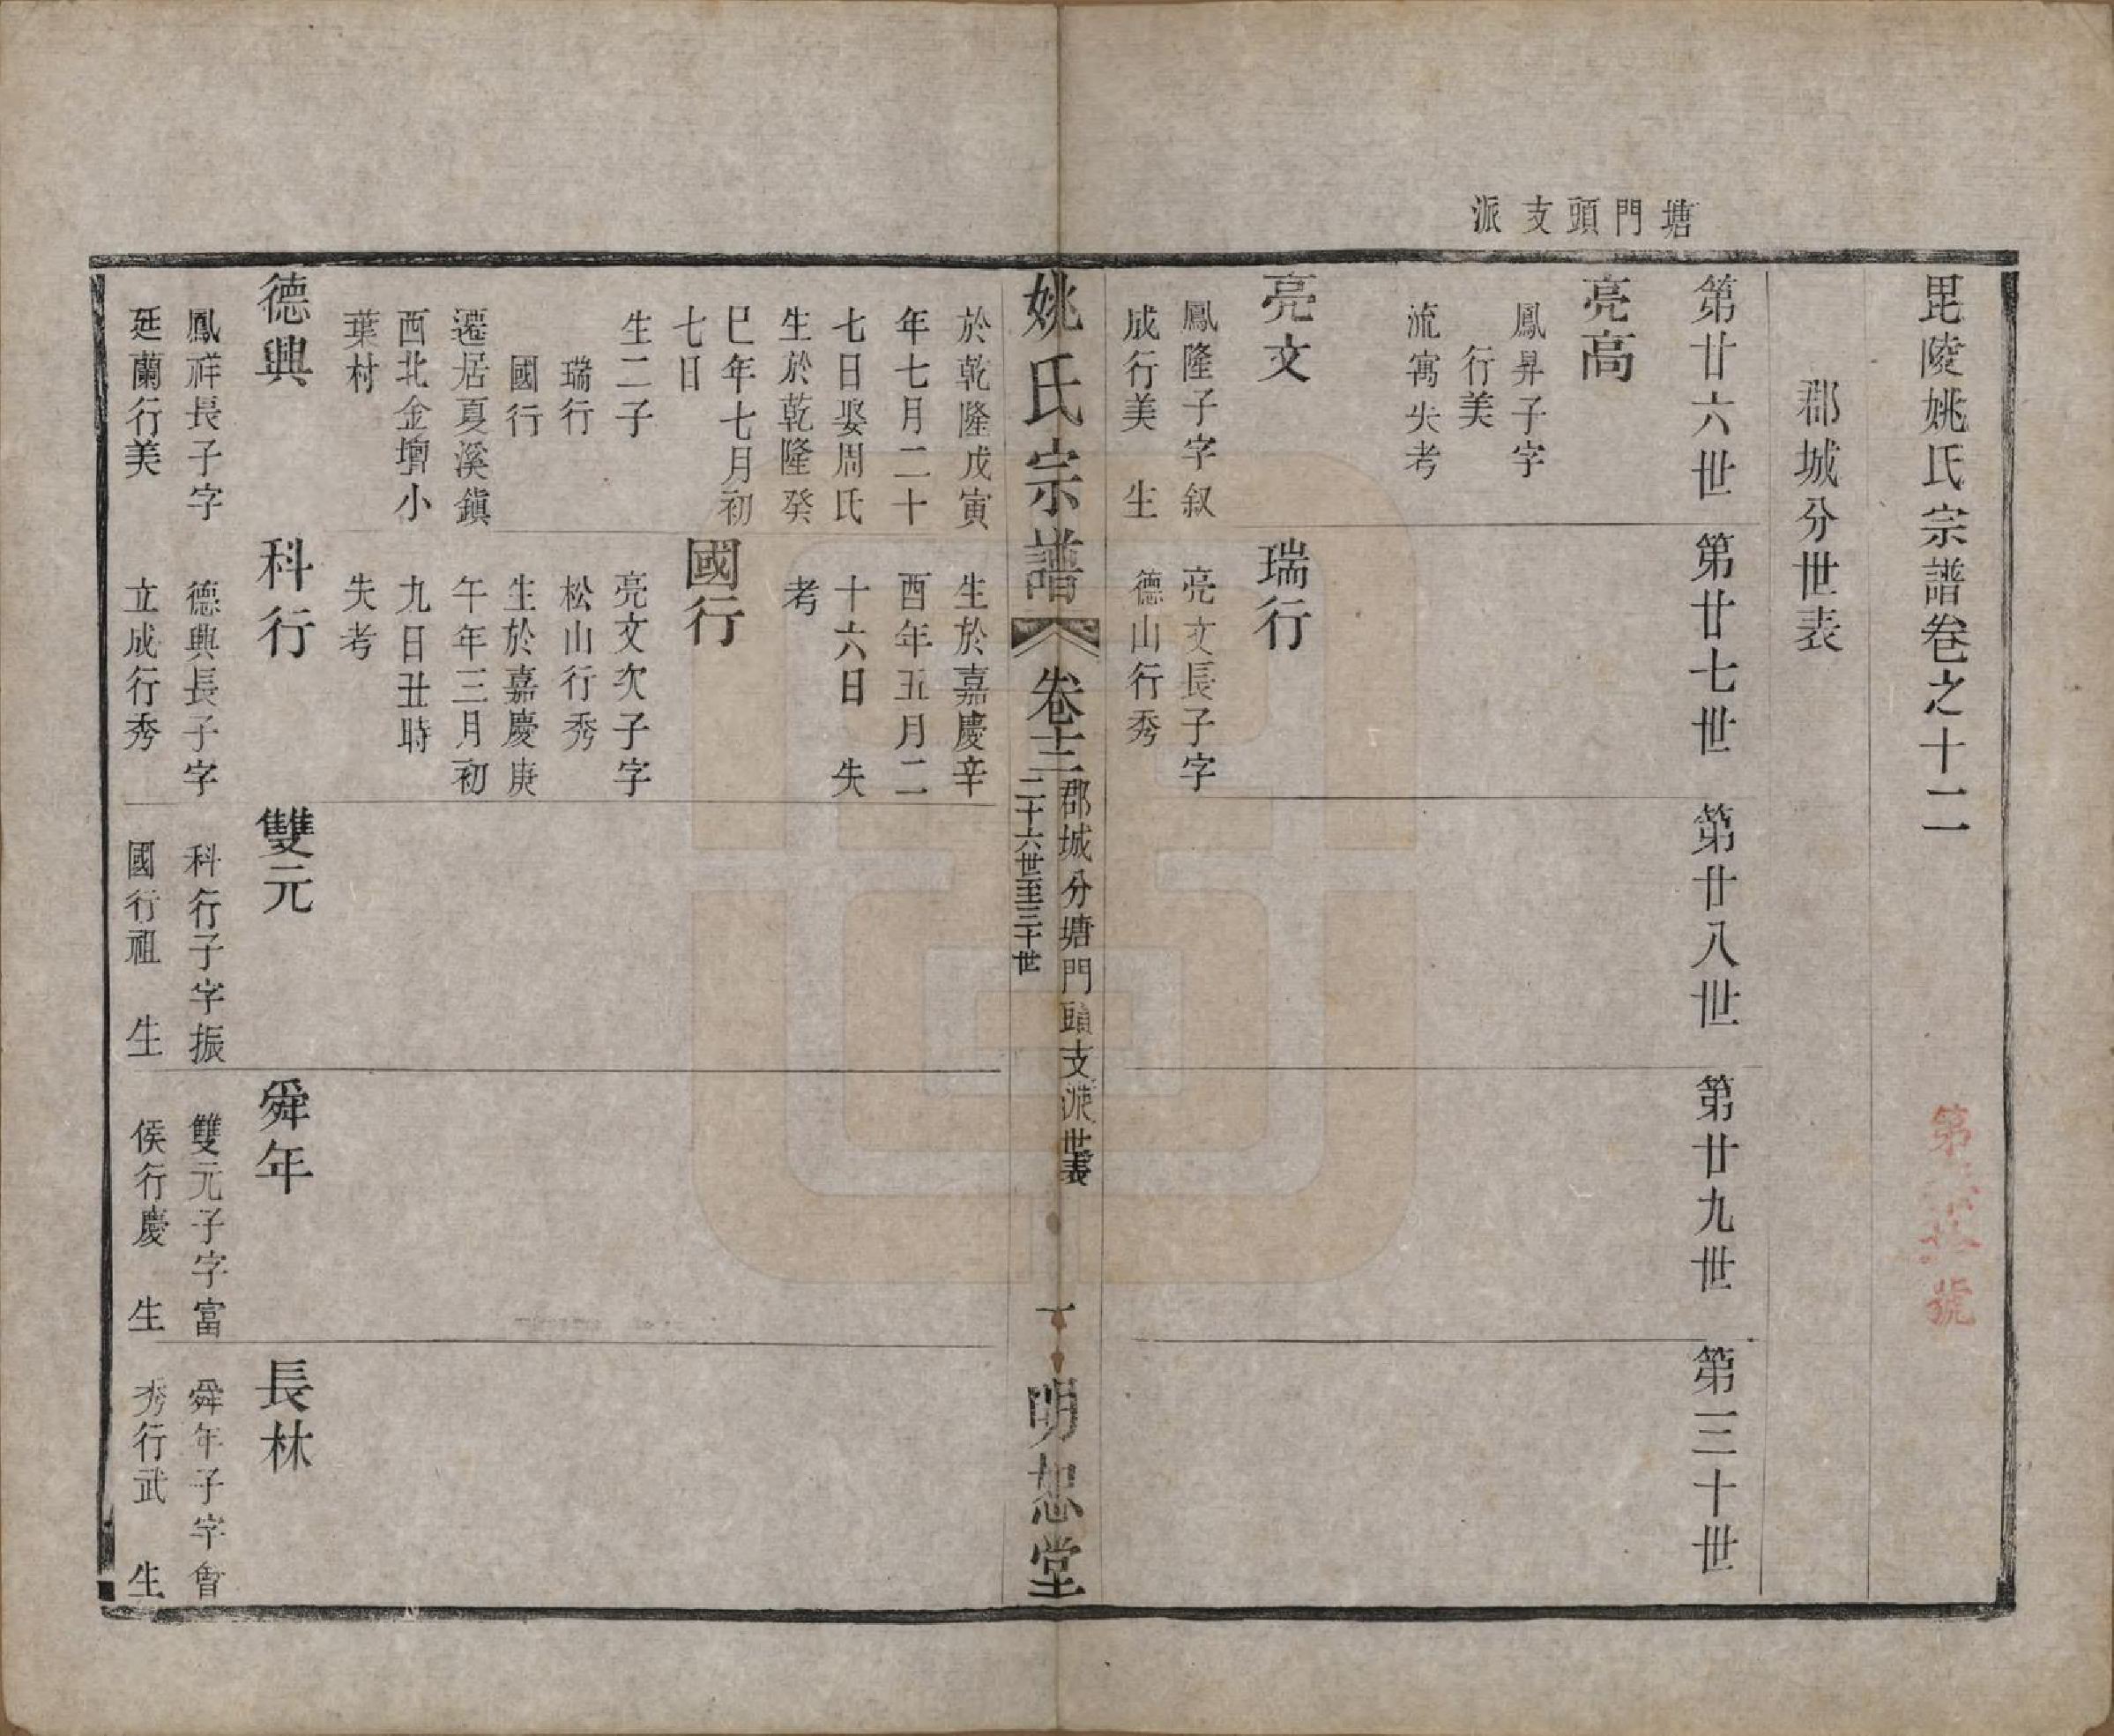 塘門頭支派
毘陵姚氏宗譜卷之十二
第
號
郡城分世表
第廿六世
第廿七世
第廿八世
第廿九世
第三十世
亮高
鳳昇子字
行美
流寓失考
亮文
鳳隆子字叙
成行美　生
瑞行
亮文長子字
德山行秀
姚氏宗譜
卷十二
郡城分塘門頭支派世表
二十六世至三十世
一
明恕堂
於乾隆戊寅
年七月二十
七日娶周氏
生於乾隆癸
巳年七月初
七日
生二子
瑞行
國行
遷居夏溪鎮
西北金壇小
葉村
生於嘉慶辛
酉年五月二
十六日　失
考
國行
亮文次子字
松山行秀
生於嘉慶庚
午年三月初
九日丑時
失考
德興
鳳祥長子字
廷蘭行美
科行
德興長子字
立成行秀
雙元
科行子字振
國行祖　生
舜年
雙元子字富
侯行慶　生
長林
舜年子字會
秀行武　生